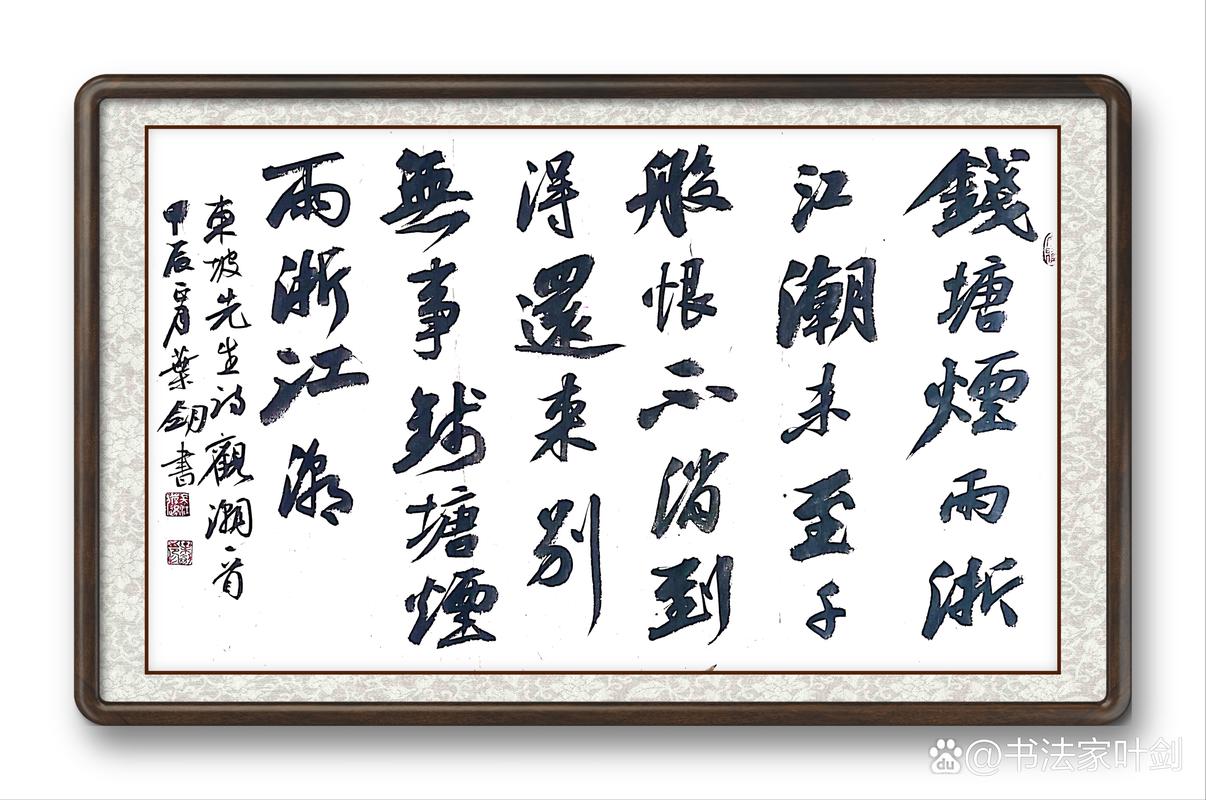 錢塘煙雨浙
江潮未至千
般恨不消到
得還來別
無事錢塘煙
雨浙江潮
東坡先生詩觀潮一首
甲辰 月葉劍書
du @书法家叶剑